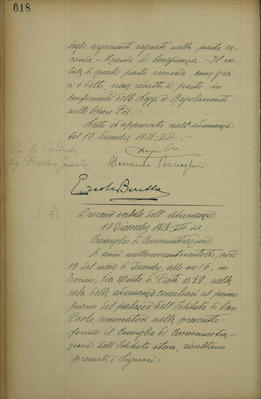 618
degli argomenti seguiti nella parte se-
conda - Azienda di beneficenza. - Il ver-
bale di questa parte seconda, come già
si è detto, viene redatto a parte in
conformità delle Leggi e Regolamenti
sulle Opere Pie.
Letto ed approvato nell'adunanza
del 10 Dicembre 1938-XVII.
Processo verbale dell'adunanza
10 Dicembre 1938-XVII del
Consiglio di Amministrazione
L'anno millenovecentotrentotto, addì
10 del mese di Dicembre, alle ore 16, in
Torino, Via Monte di Pietà N. 32, nella
sala delle adunanze consiliari al primo
piano del palazzo dell'Istituto di San
Paolo, convocatosi nelle prescritte
forme il Consiglio di Amministra-
zione dell'Istituto stesso, risultano
presenti i Signori: